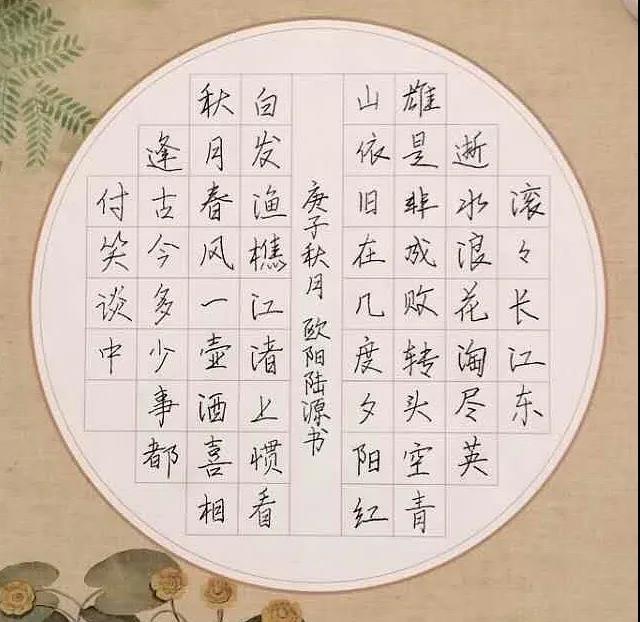 滚々长江东
逝水浪花淘尽英
雄是非成败转头空青
山依旧在几度夕阳红
庚子秋月 欧阳陆源书
白发渔樵江渚上惯看
秋月春风一壶酒喜相
逢古今多少事都
付笑谈中